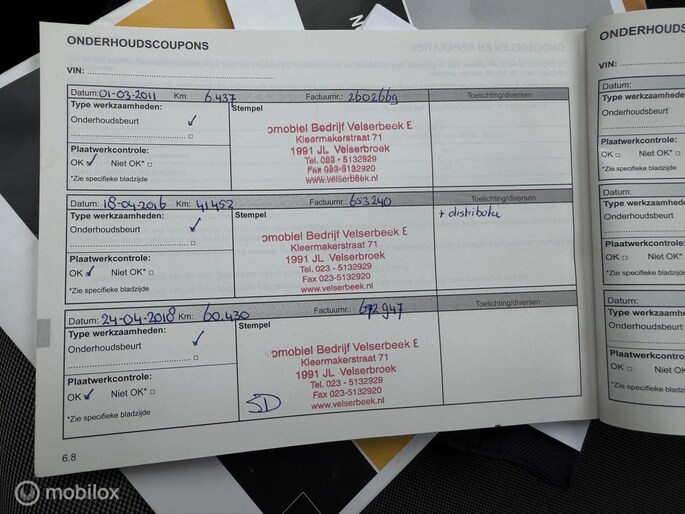 ONDERHOUDSCOUPONS
VIN:
Datum: 01-03-2011 Km: 6.437 Factuurnr.: 2602669 Toelichting/diversen
Type werkzaamheden:
Onderhoudsbeurt ✓
Stempel
omobiel Bedrijf Velserbeek E
Kleermakerstraat 71
1991 JL Velserbroek
Tel. 023 - 5132929
Fax 023-5132920
www.velserbeek.nl
Plaatwerkcontrole:
OK ✓ Niet OK* □
*Zie specifieke bladzijde
Datum: 18-04-2016 Km: 41452 Factuurnr.: 653240 Toelichting/diversen
Type werkzaamheden:
Onderhoudsbeurt ✓
Stempel
omobiel Bedrijf Velserbeek E
Kleermakerstraat 71
1991 JL Velserbroek
Tel. 023 - 5132929
Fax 023-5132920
www.velserbeek.nl
+ distributie
Plaatwerkcontrole:
OK ✓ Niet OK* □
*Zie specifieke bladzijde
Datum: 24-04-2018 Km: 60.430 Factuurnr.: 672947 Toelichting/diversen
Type werkzaamheden:
Onderhoudsbeurt ✓
Stempel
omobiel Bedrijf Velserbeek E
Kleermakerstraat 71
1991 JL Velserbroek
Tel. 023 - 5132929
Fax 023-5132920
www.velserbeek.nl
SD
Plaatwerkcontrole:
OK ✓ Niet OK* □
*Zie specifieke bladzijde
6.8
ONDERHOUDS
VIN:
Datum:
Type werkzaamheden:
Onderhoudsbeurt
Plaatwerkcontrole:
OK □ Niet OK* □
*Zie specifieke bladzijde
Datum:
Type werkzaamheden:
Onderhoudsbeurt
Plaatwerkcontrole:
OK □ Niet OK* □
*Zie specifieke bladzijde
Datum:
Type werkzaamheden
Onderhoudsbeurt
Plaatwerkcontrole
OK □ Niet OK
*Zie specifieke bladzijde
mobilox